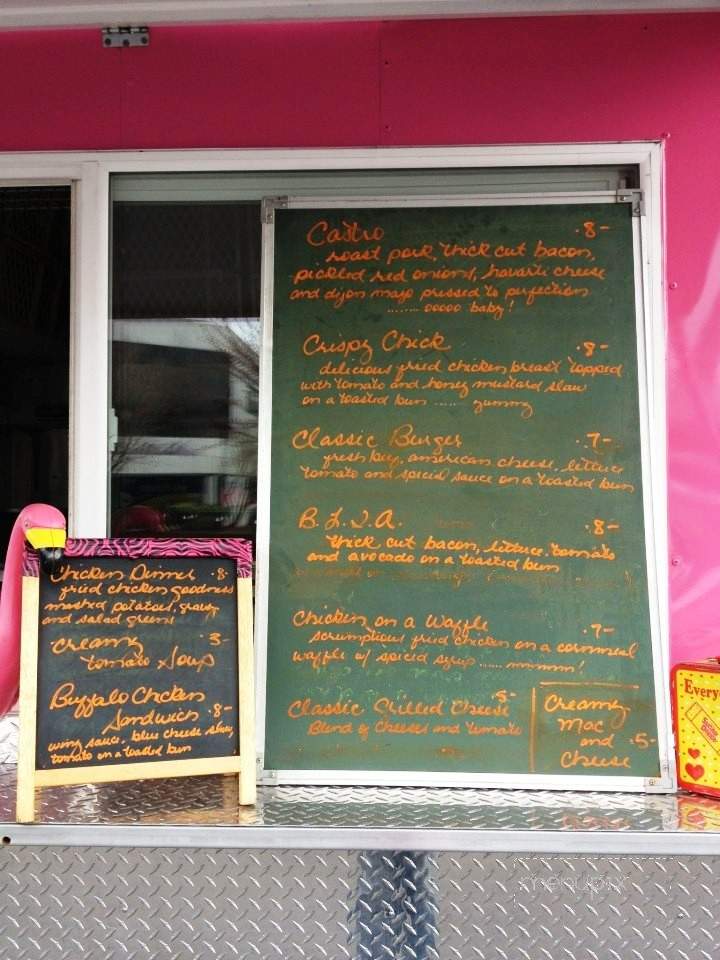 Castro ·8-
roast pork, thick cut bacon,
pickled red onions, havarti cheese
and dijon mayo pressed to perfection
....... ooooo baby!
Crispy Chick ·8-
delicious fried chicken breast topped
with tomato and honey mustard slaw
on a toasted bun ...... yummy
Classic Burger ·7-
fresh beef, american cheese, lettuce
tomato and special sauce on a toasted bun
B.L.T.A. ·8-
thick cut bacon, lettuce, tomato
and avocado on a toasted bun
Chicken on a Waffle ·7-
scrumptious fried chicken on a cornmeal
waffle w/ spiced syrup ...... mmmm!
Classic Grilled Cheese ·5-
Blend of cheeses and tomato
Creamy
Mac
and ·5-
Cheese
Chicken Dinner ·8-
fried chicken goodness
mashed potatoes, gravy
and salad greens
Creamy 3-
Tomato Soup
Buffalo Chicken
Sandwich ·8-
wing sauce, blue cheese slaw,
tomato on a toasted bun
Every
menupix